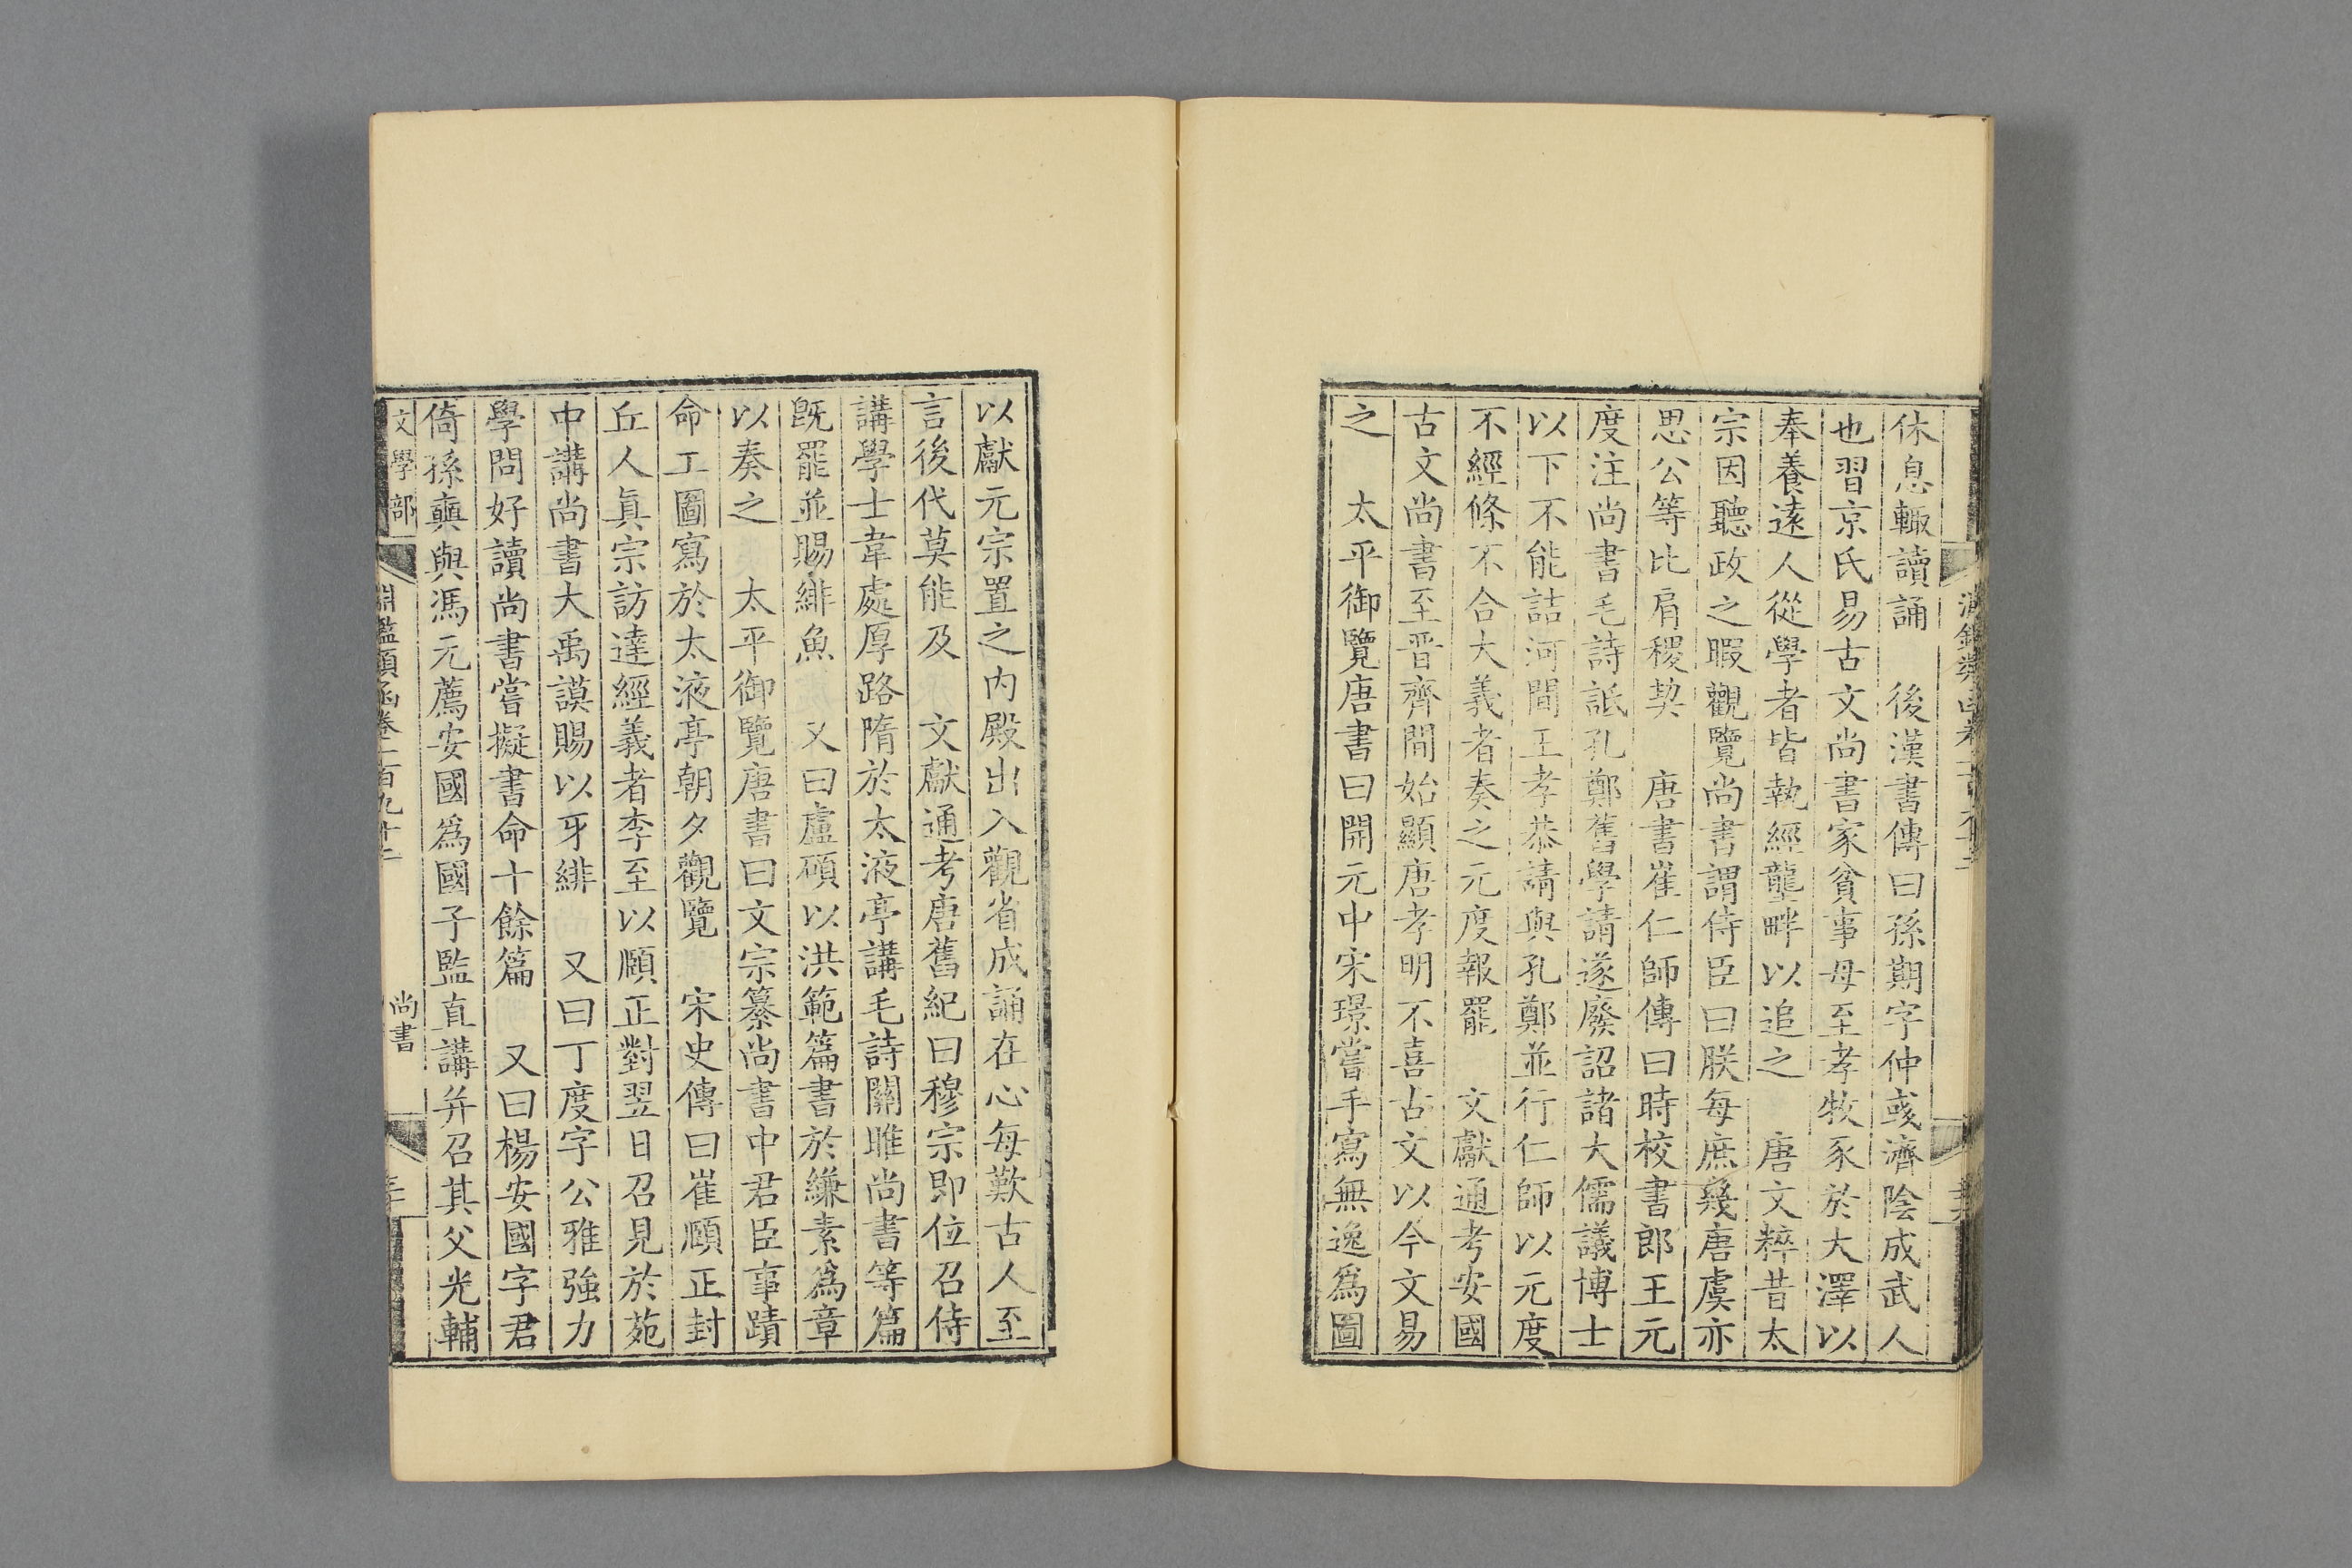 休息輙讀誦　後漢書傳曰孫期字仲彧濟陰成武人
也習京氏易古文尚書家貧事母至孝牧豕於大澤以
奉養遠人從學者皆執經壟畔以追之　唐文粹昔太
宗因聽政之暇觀覽尚書謂侍臣曰朕每庶幾唐虞亦
思公等比肩稷契　唐書崔仁師傳曰時校書郎王元
度注尚書毛詩詆孔鄭舊學請遂廢詔諸大儒議博士
以下不能詰河間王孝恭請與孔鄭並行仁師以元度
不經條不合大義者奏之元度報罷　文獻通考安國
古文尚書至晉齊間始顯唐孝明不喜古文以今文易
之　太平御覽唐書曰開元中宋璟嘗手寫無逸爲圖
以獻元宗置之內殿出入觀省成誦在心每歎古人至
言後代莫能及　文獻通考唐舊紀曰穆宗即位召侍
講學士韋處厚路隋於太液亭講毛詩關雎尚書等篇
旣罷並賜緋魚　又曰盧碩以洪範篇書於縑素爲章
以奏之　太平御覽唐書曰文宗纂尚書中君臣事蹟
命工圖寫於太液亭朝夕觀覽　宋史傳曰崔頥正封
丘人眞宗訪達經義者李至以頥正對翌日召見於苑
中講尚書大禹謨賜以牙緋　又曰丁度字公雅強力
學問好讀尚書嘗擬書命十餘篇　又曰楊安國字君
倚孫奭與馮元薦安國爲國子監直講并召其父光輔
文學部　淵鑑類函卷一百九十二　尚書